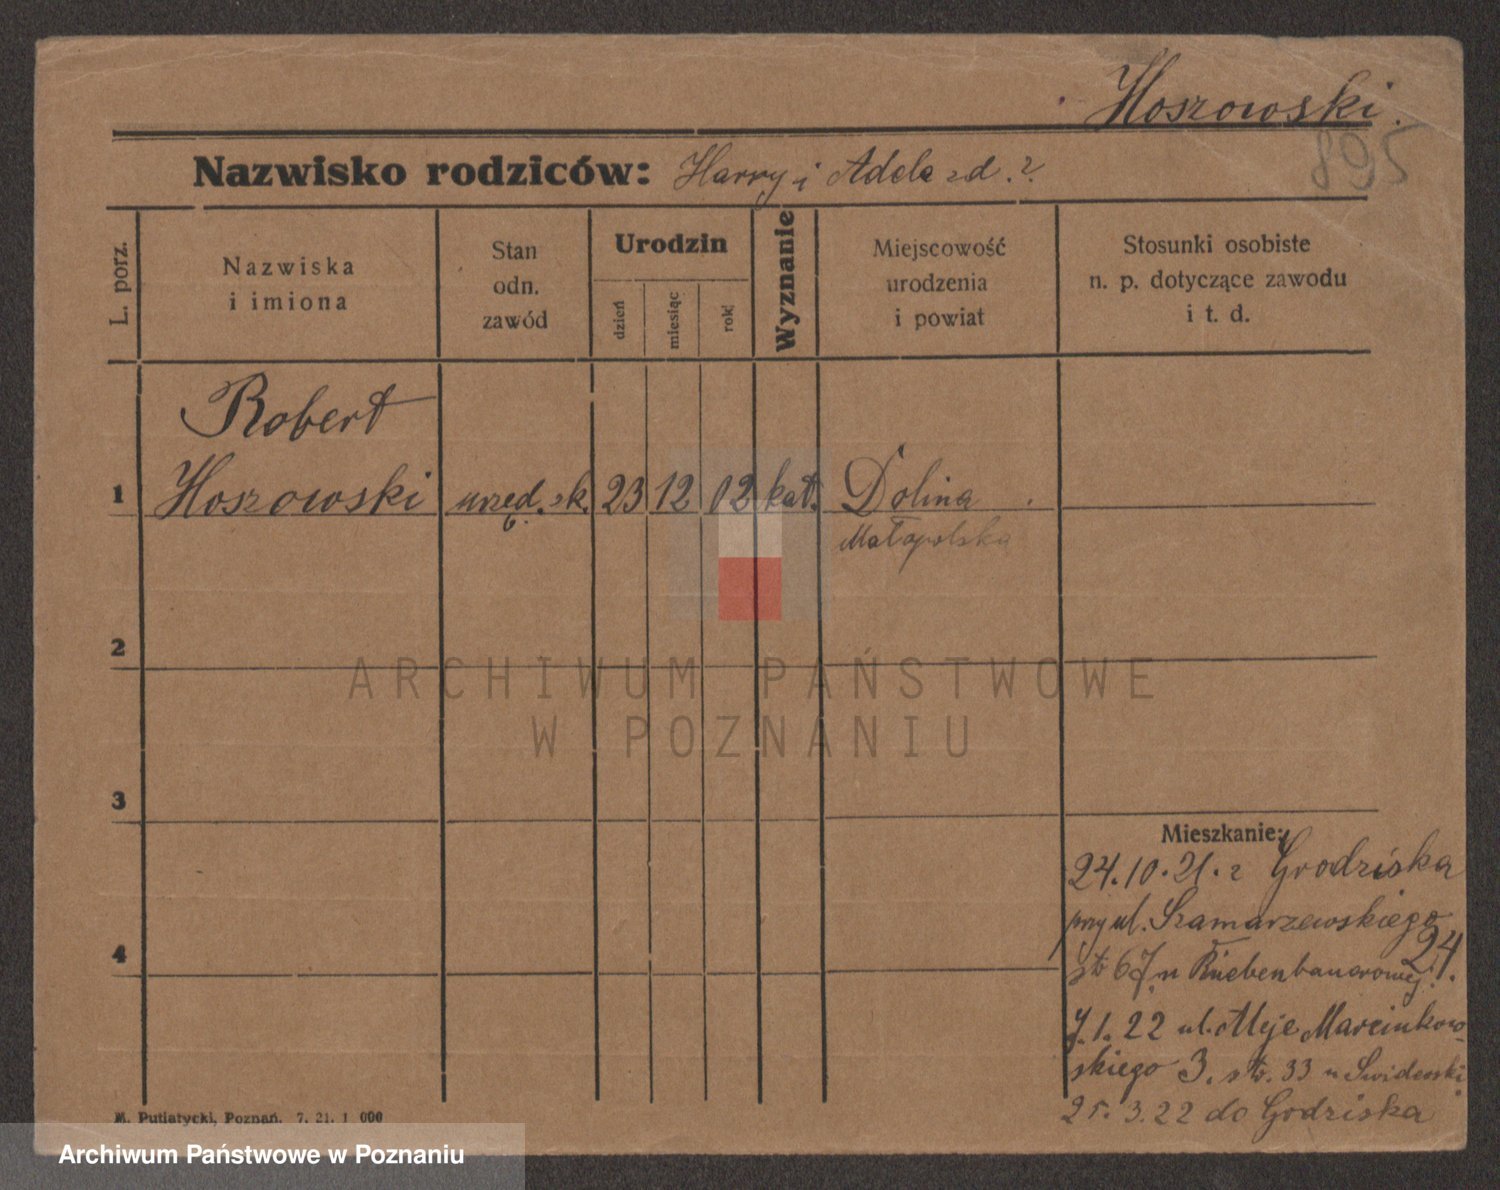 Hoszowski.
895
Nazwisko rodziców: Harry i Adela zd. ?
L. porz.
Nazwiska
i imiona
Stan
odn.
zawód
Urodzin
dzień
miesiąc
rok
Wyznanie
Miejscowość
urodzenia
i powiat
Stosunki osobiste
n. p. dotyczące zawodu
i t. d.
Robert
1 Hoszowski urzęd. sk. 23 12 02 kat. Dolina
Małopolska
2
ARCHIWUM PAŃSTWOWE
W POZNANIU
3
Mieszkanie:
24.10.21. z Grodziska
przy ul. Szamarzewskiego
24.
4
str 67. u
7.1.22 ul. Aleje Marcinkow-
skiego 3. str. 33 u
25.3.22 do Godziska
M. Putiatycki, Poznań. 7. 21. 1 000
Archiwum Państwowe w Poznaniu